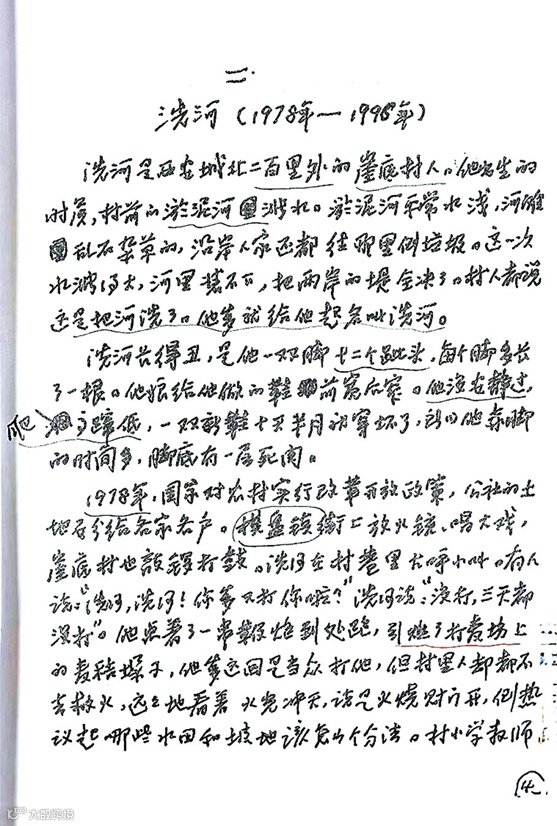 二.
洗河（1978年—1996年）
洗河是西安城北二百里外的崖底村人。他出生的
时候，村前的淤泥河涨水。淤泥河平常水浅，河滩
乱石杂草的，沿岸人家还都往那里倒垃圾。这一次
水涨得大，河里装不下，把两岸的堤全决了。村人都说
这是把河洗了。他爹就给他起名叫洗河。
洗河长得丑，是他一双脚十二个趾头，每个脚多长
了一根。他娘给他做的鞋前宽后窄。他没安静过，
爬高蹿低，一双新鞋十天半月就穿坏了，所以他赤脚
的时间多，脚底有一层死肉。
1978年，国家对农村实行改革开放政策，公社的土
地要分给各家各户。棋盘镇街上放火铳、唱大戏，
崖底村也敲锣打鼓。洗河在村巷里大呼小叫。有人
说："洗河，洗河！你爹又打你啦？"洗河说："没打，三天都
没打"。他点着了一串鞭炮到处跑，引燃了打麦场上
的麦秸垛子，他爹这回是当众打他，但村里人却都不
去救火，远远地看着火光冲天，说是火烧财门开，倒热
议起那些水田和坡地该怎么个分法。村小学教师
4
大众深信